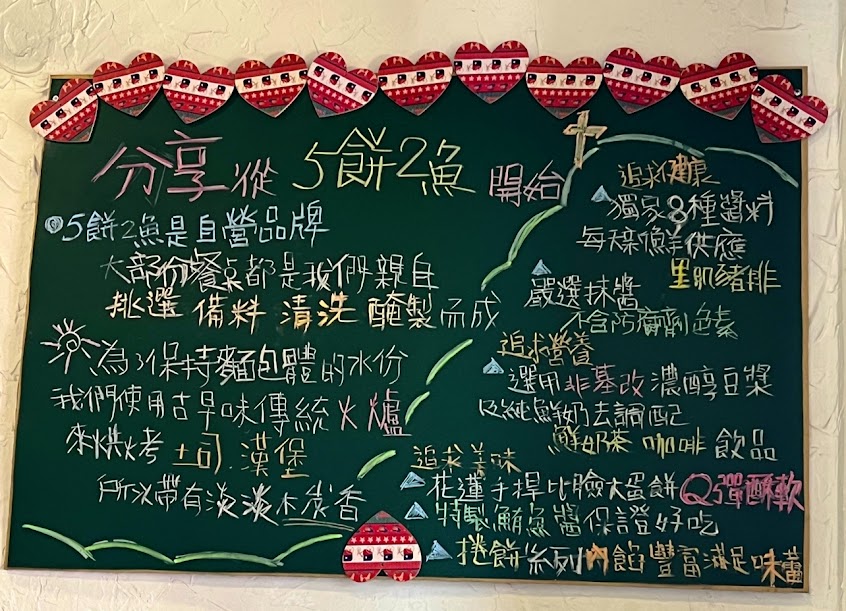 分享從 5餅2魚 開始
5餅2魚是自營品牌
大部份餐桌都是我們親自
挑選 備料 清洗 醃製而成
為了保持麵包體的水份
我們使用古早味傳統火爐
來烘烤 土司.漢堡
所以帶有淡淡木炭香
追求健康
獨家8種醬料
每天新鮮供應
里肌豬排
嚴選抹醬
不含防腐劑色素
追求營養
選用非基改濃醇豆漿
以純鮮奶去調配
鮮奶茶 咖啡 飲品
追求美味
花蓮手捍比臉大蛋餅Q彈酥軟
特製鮪魚醬保證好吃
捲餅系列內餡豐富滿足味蕾